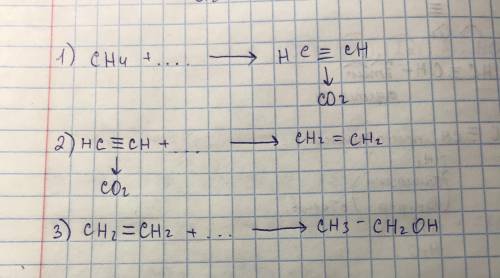 1) CH4 + .... → HC ≡ CH
↓
CO2
2) HC ≡ CH + ... → CH2 = CH2
↓
CO2
3) CH2 = CH2 + ... → CH3 - CH2OH